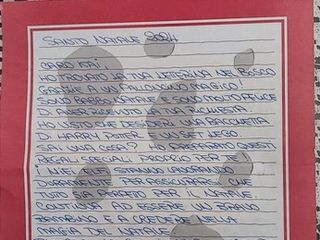 SANTO NATALE 2024
CARO
HO TROVATO LA TUA LETTERINA NEL BOSCO
GRAZIE A UN PALLONCINO MAGICO!
SONO BABBO NATALE E SONO MOLTO FELICE
DI AVER RICEVUTO LA TUA RICHIESTA
HO VISTO CHE DESIDERI UNA BACCHETTA
DI HARRY POTER E UN SET LEGO.
SAI UNA COSA? HO PREPARATO QUESTI
REGALI SPECIALI PROPRIO PER TE!
I MIEI ELFI STANNO LAVORANDO
DURAMENTE PER ASSICURARSI CHE
TUTTO SIA PERFETTO PER IL NATALE.
CONTINUA AD ESSERE UN BRAVO
BAMBINO E A CREDERE NELLA
MAGIA DEL NATALE